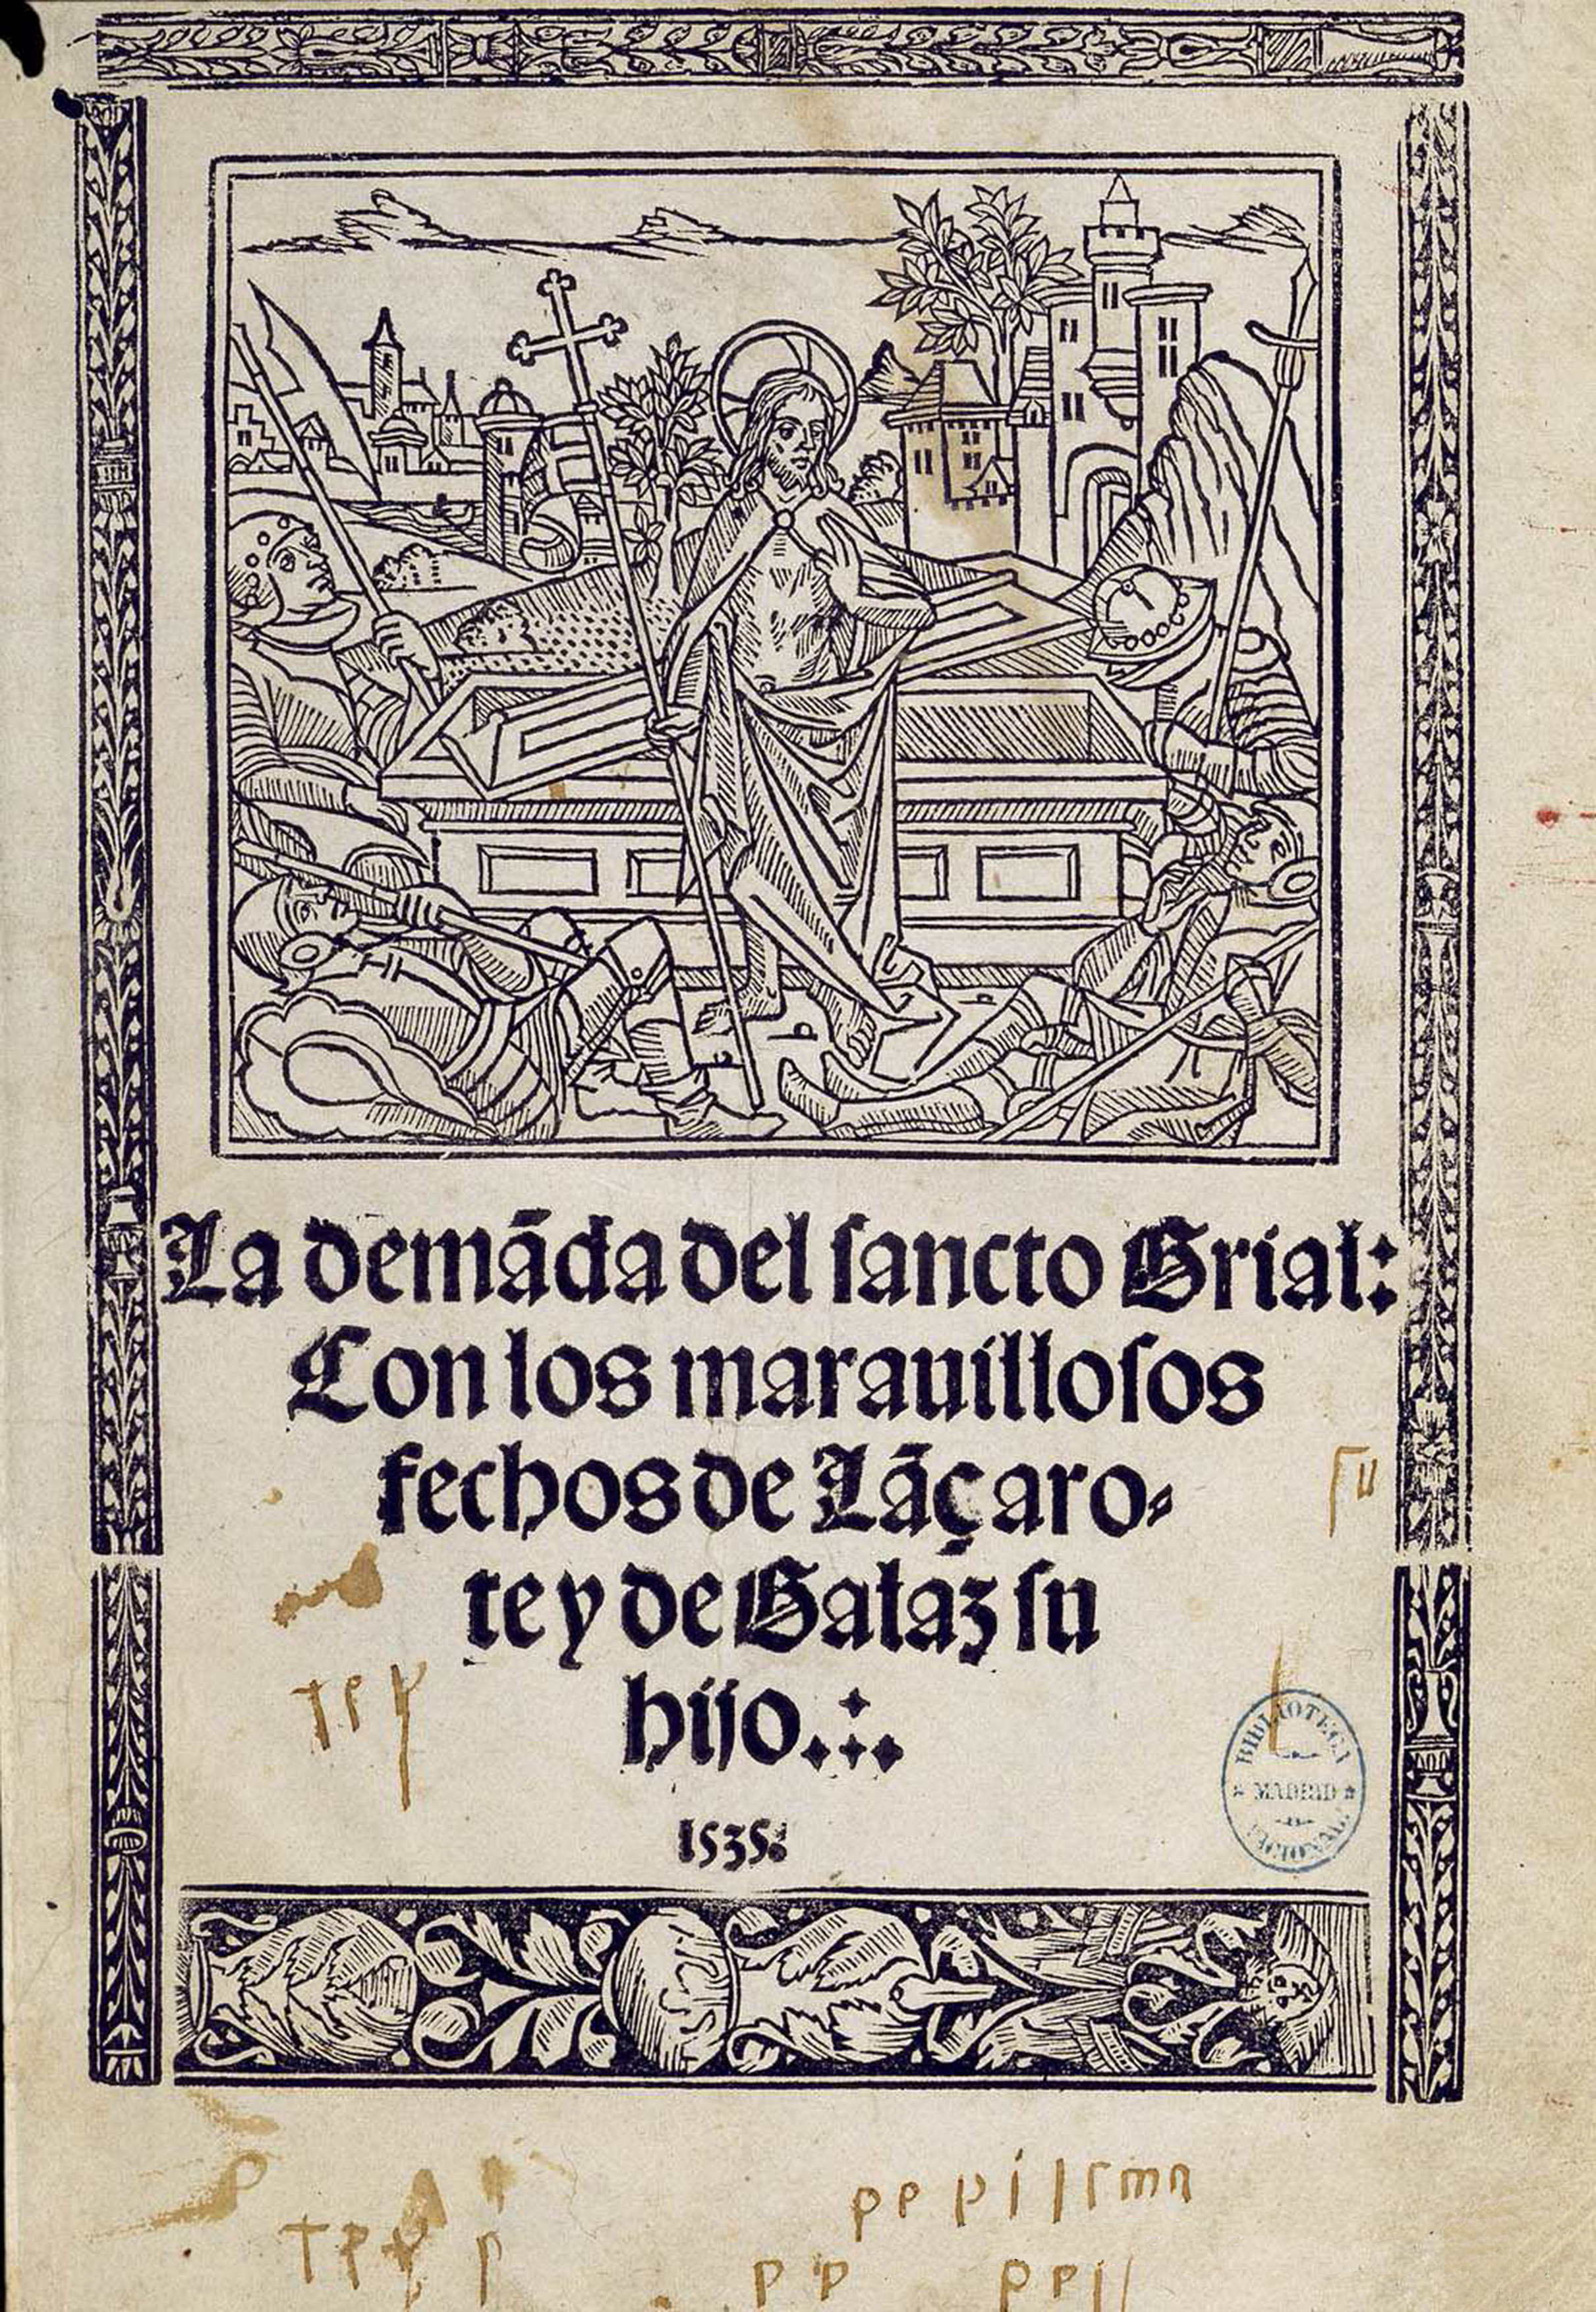 La demãda del ſancto Grial:
Con los marauilloſos
fechos de Lãçaro-
te y de Galaz ſu
hijo.
1535.
BIBLIOTECA
MADRID
NACIONAL